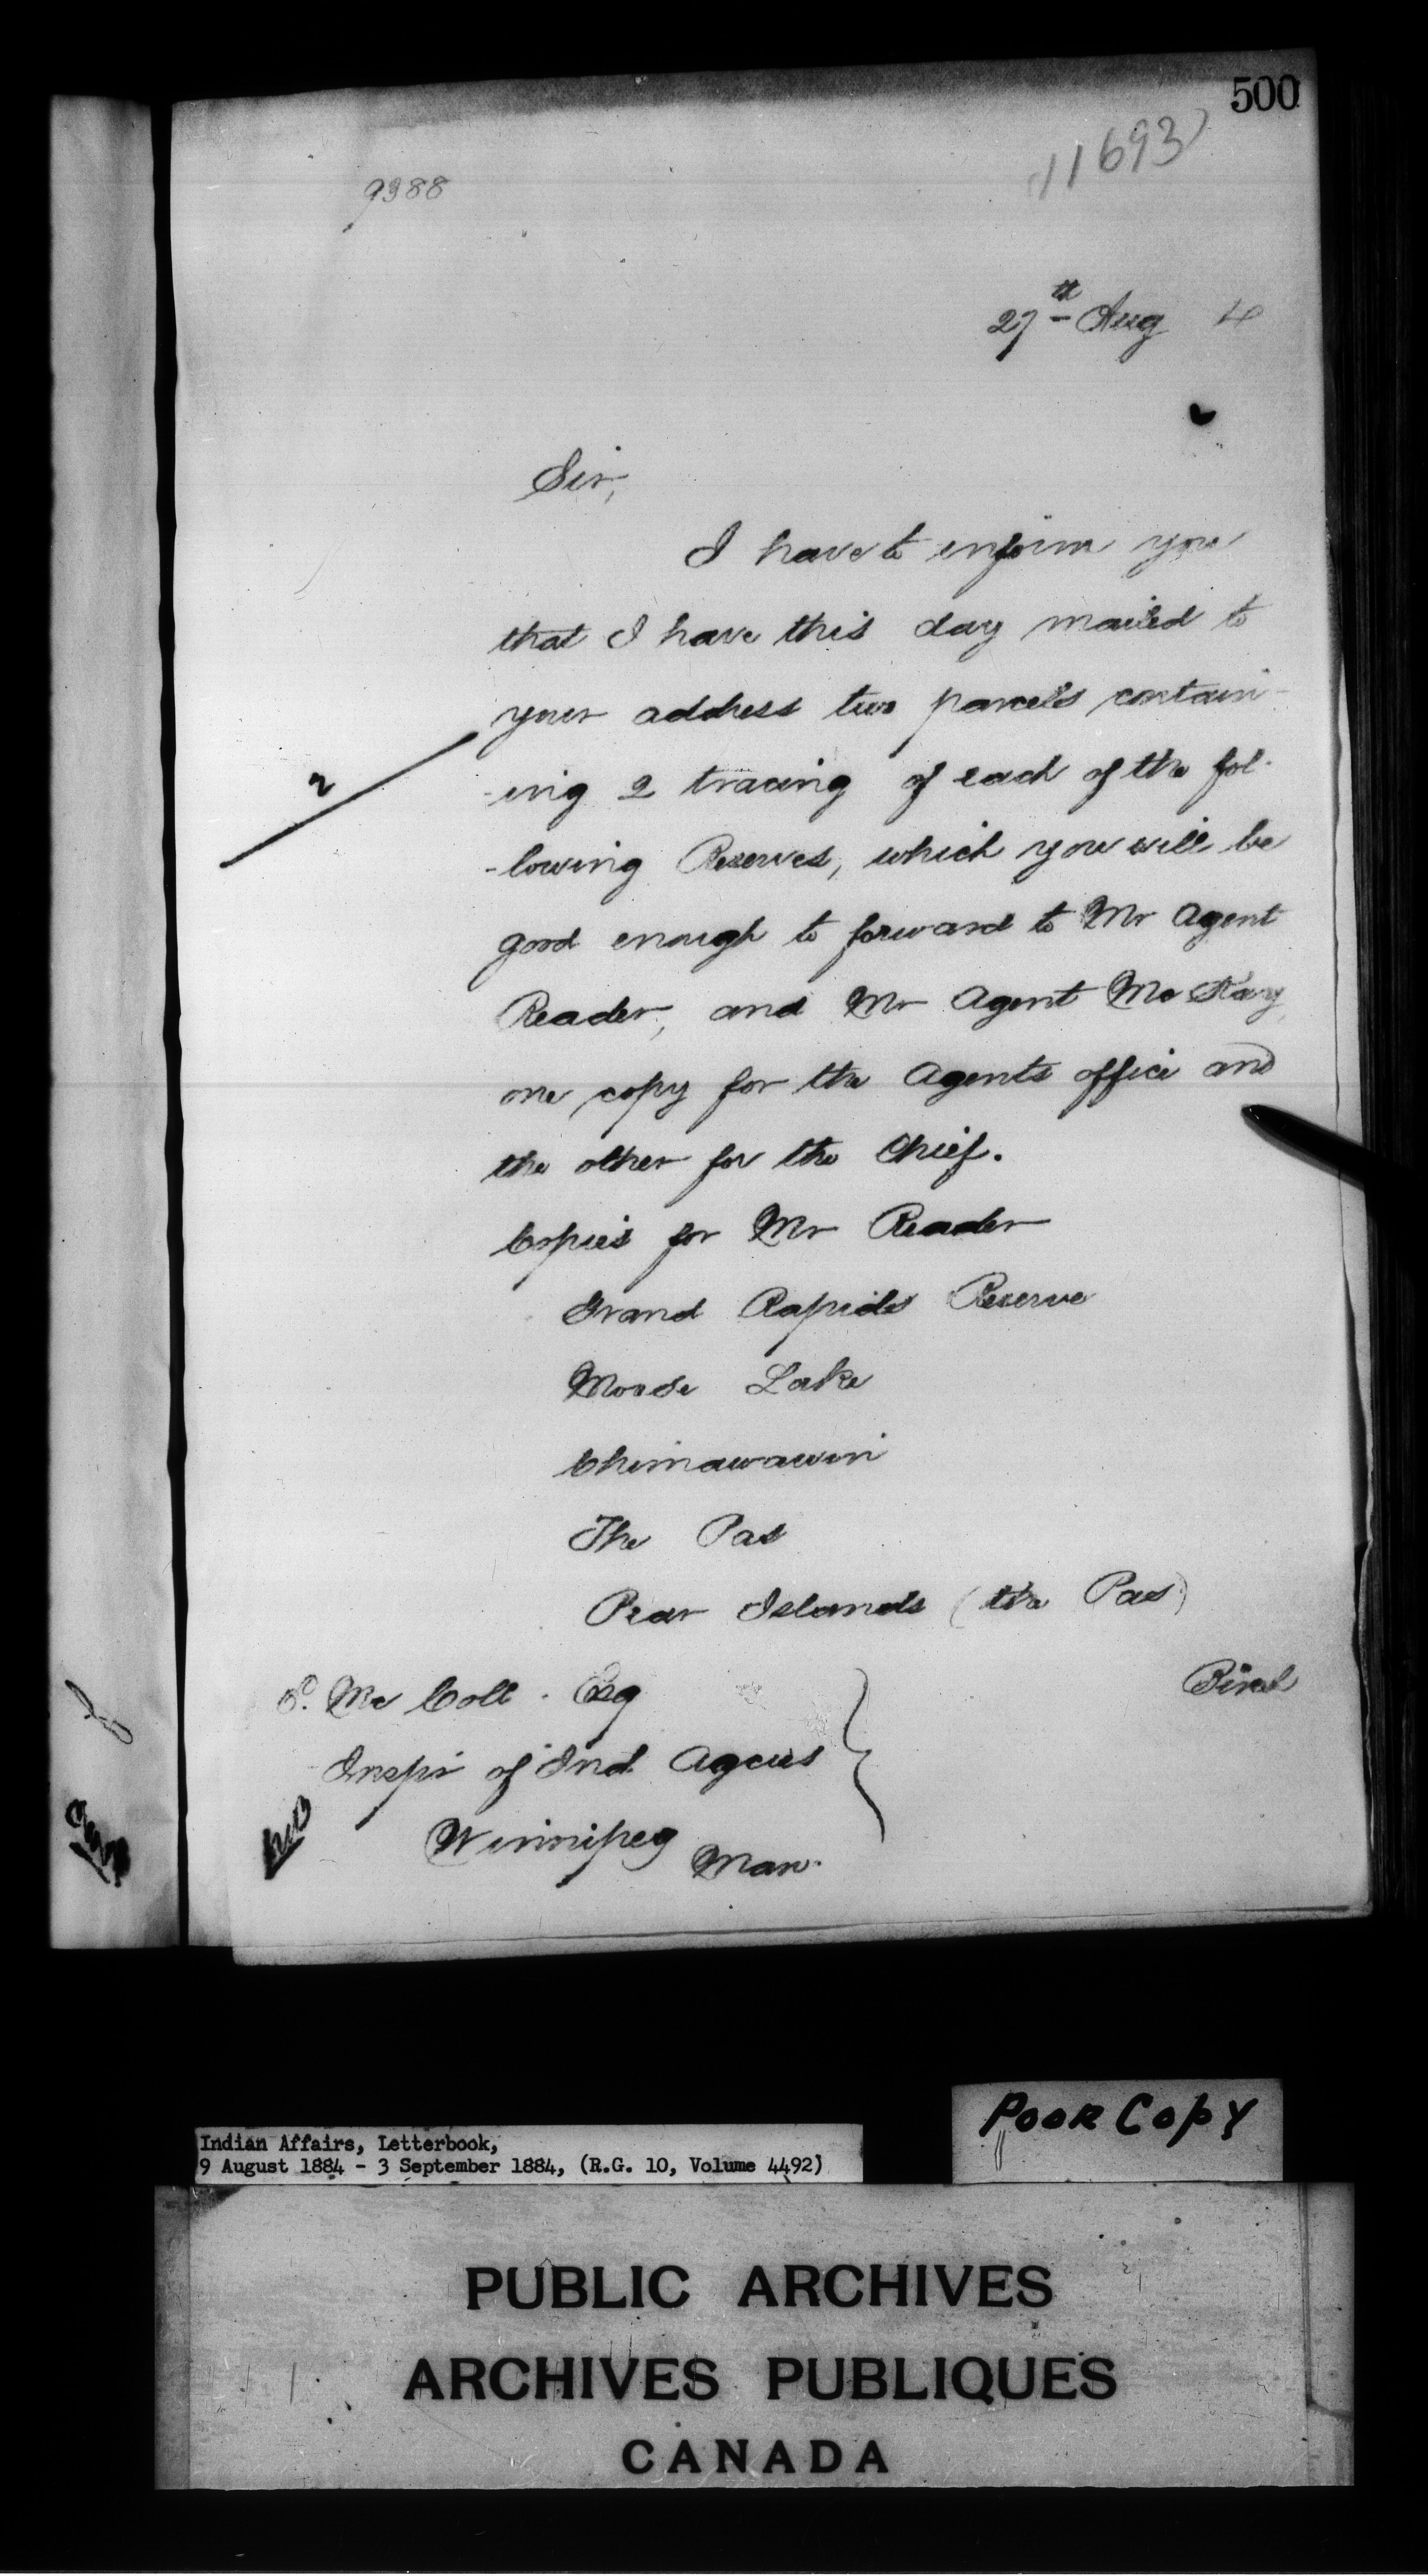 500
11693
9388
27th Aug 4
Sir,
I have to inform you
that I have this day mailed to
your address two parcels contain-
-ing 2 tracing of each of the fol-
2
-lowing Reserves, which you will be
good enough to forward to Mr Agent
Reader, and Mr Agent McKay,
one copy for the Agents office and
the other for the Chief.
Copies for Mr Reader
Grand Rapids Reserve
Moose Lake
Chimawawin
The Pas
Pear Islands (the Pas)
Birch
E. McColl. Esq
Inspr of Ind. Agcies
Winnipeg
Man.
Poor Copy
Indian Affairs, Letterbook,
9 August 1884 - 3 September 1884, (R.G. 10, Volume 4492)
PUBLIC ARCHIVES
ARCHIVES PUBLIQUES
CANADA